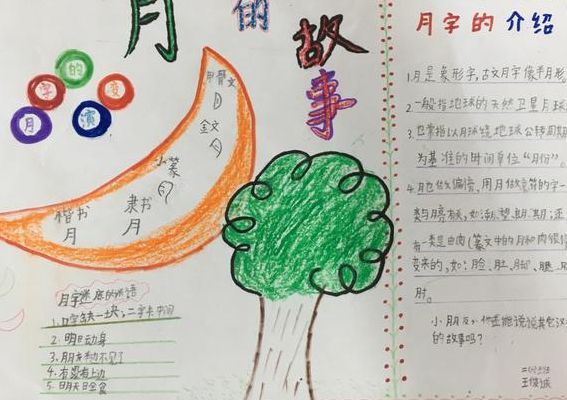 月的故事
月字的演变
甲骨文
金文
小篆
隶书
月
楷书
月
月字谜底的谜语
1. 口字缺一块,二字去中间
2. 明日动身
3. 朋友移动不见了
4. 有要有上边
5. 明天日全食
月字的介绍
1.月是象形字,古文月字像半月形
2.一般指地球的天然卫星月球
3.也常指以月球绕地球公转周期
为基准的时间单位“月份”。
4.月也做偏旁,用月做意符的字一
类与月亮有关,如:朔、望、朗、期;还
有一类是由肉(篆文中的月和肉很像)
变来的。如:脸、肚、脚、腰、
肘。
小朋友,你还能说说其它汉
的故事吗?